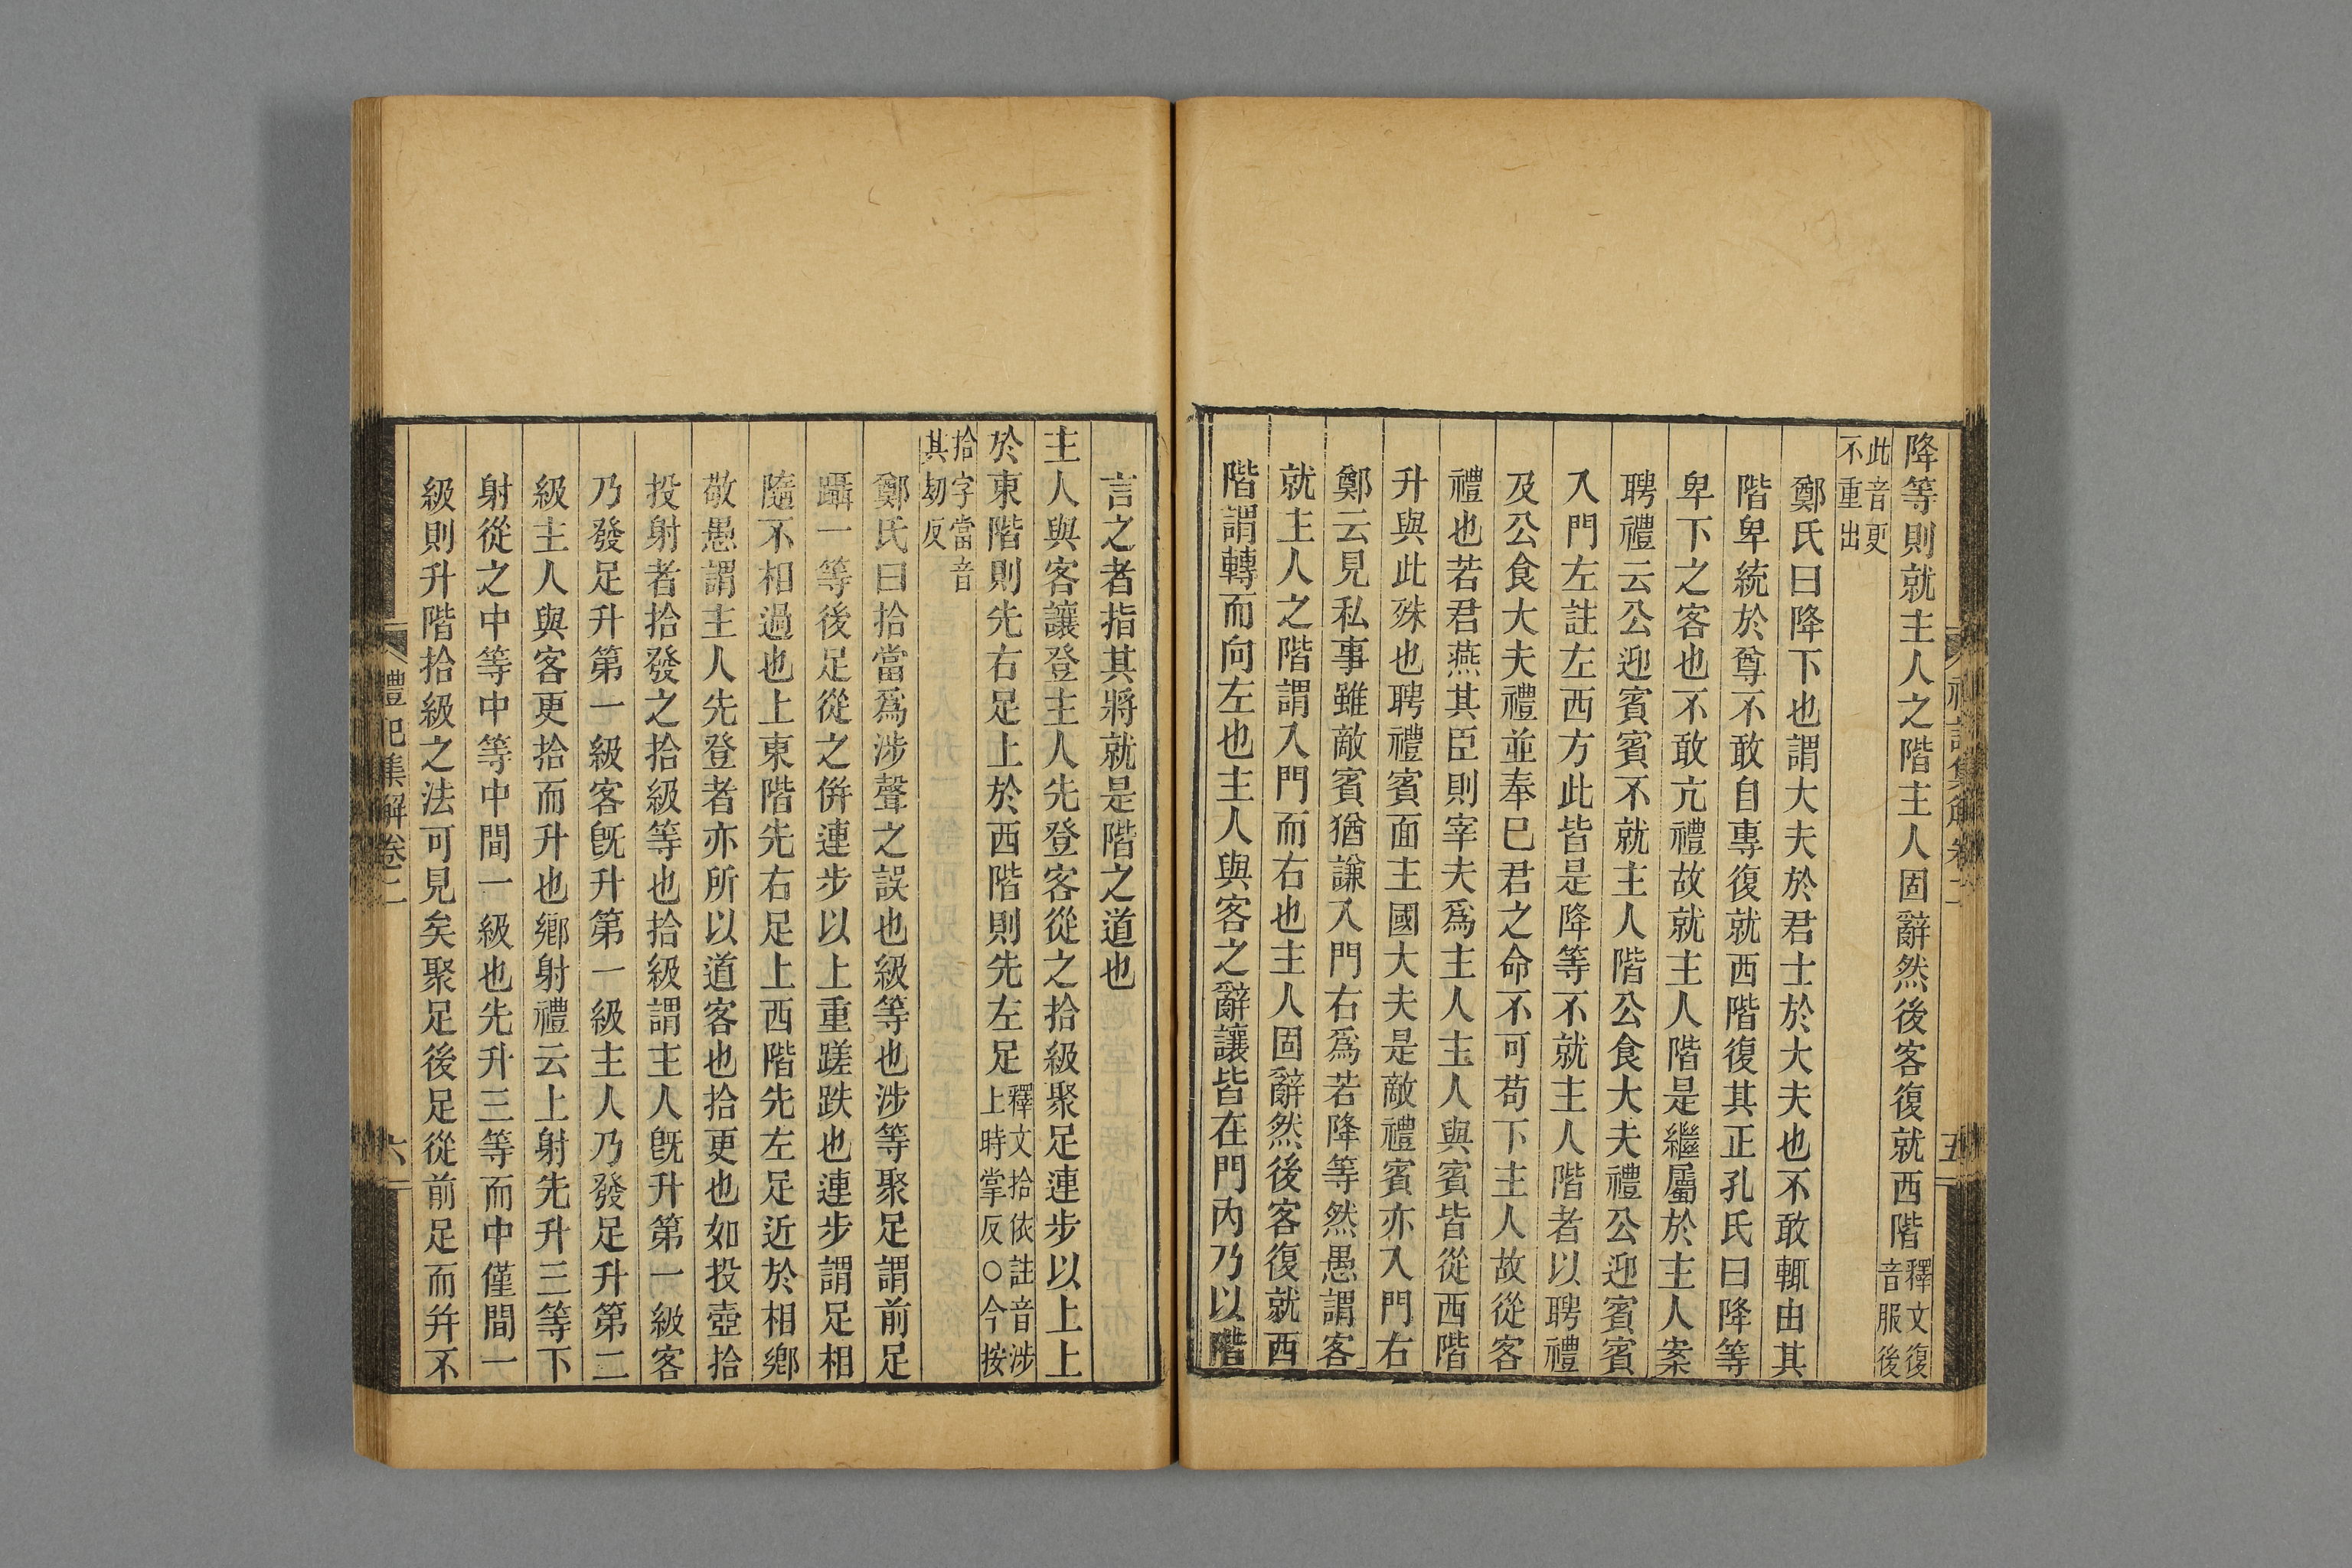 降等則就主人之階主人固辭然後客復就西階釋文復音服後
此音更不重出
鄭氏曰降下也謂大夫於君士於大夫也不敢輒由其
階卑統於尊不敢自專復就西階復其正孔氏曰降等
卑下之客也不敢亢禮故就主人階是繼屬於主人案
聘禮云公迎賓賓不就主人階公食大夫禮公迎賓賓
入門左註左西方此皆是降等不就主人階者以聘禮
及公食大夫禮並奉巳君之命不可苟下主人故從客
禮也若君燕其臣則宰夫爲主人主人與賓皆從西階
升與此殊也聘禮賓面主國大夫是敵禮賓亦入門右
鄭云見私事雖敵賓猶謙入門右爲若降等然愚謂客
就主人之階謂入門而右也主人固辭然後客復就西
階謂轉而向左也主人與客之辭讓皆在門內乃以階
言之者指其將就是階之道也
主人與客讓登主人先登客從之拾級聚足連步以上上
於東階則先右足上於西階則先左足釋文拾依註音涉上時掌反○今按
拾字當音其劫反
鄭氏曰拾當爲涉聲之誤也級等也涉等聚足謂前足
躡一等後足從之併連步以上重蹉跌也連步謂足相
隨不相過也上東階先右足上西階先左足近於相鄉
敬愚謂主人先登者亦所以道客也拾更也如投壺拾
投射者拾發之拾級等也拾級謂主人旣升第一級客
乃發足升第一級客旣升第一級主人乃發足升第二
級主人與客更拾而升也鄉射禮云上射先升三等下
射從之中等中等中間一級也先升三等而中僅間一
級則升階拾級之法可見矣聚足後足從前足而幷不
禮記集解卷二
六
五